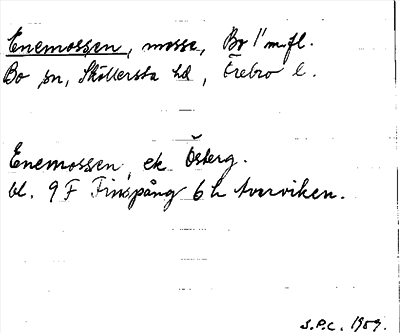 Enemossen, mosse, Bo 1" m.fl.
Bo sn, Sköllersta hd, Örebro l.
Enemossen ek Österg.
bl. 9 F Finspång 6 h Averviken.
S.P.C. 1959.